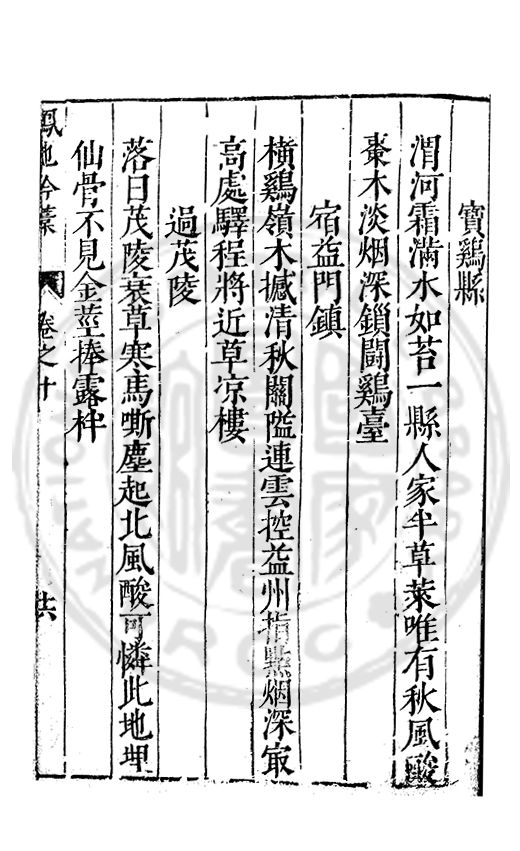 寶鷄縣
渭河霜滿水如苔一縣人家半草萊唯有秋風酸
棗木淡烟深鎖鬪鷄臺
宿益門鎮
橫鷄嶺木撼清秋關隘連雲控益州指點烟深冣
高處驛程將近草凉樓
過茂陵
落日茂陵衰草寒馬嘶塵起北風酸可憐此地埋
仙骨不見金莖捧露柈
鳳池吟藁 卷之十 共